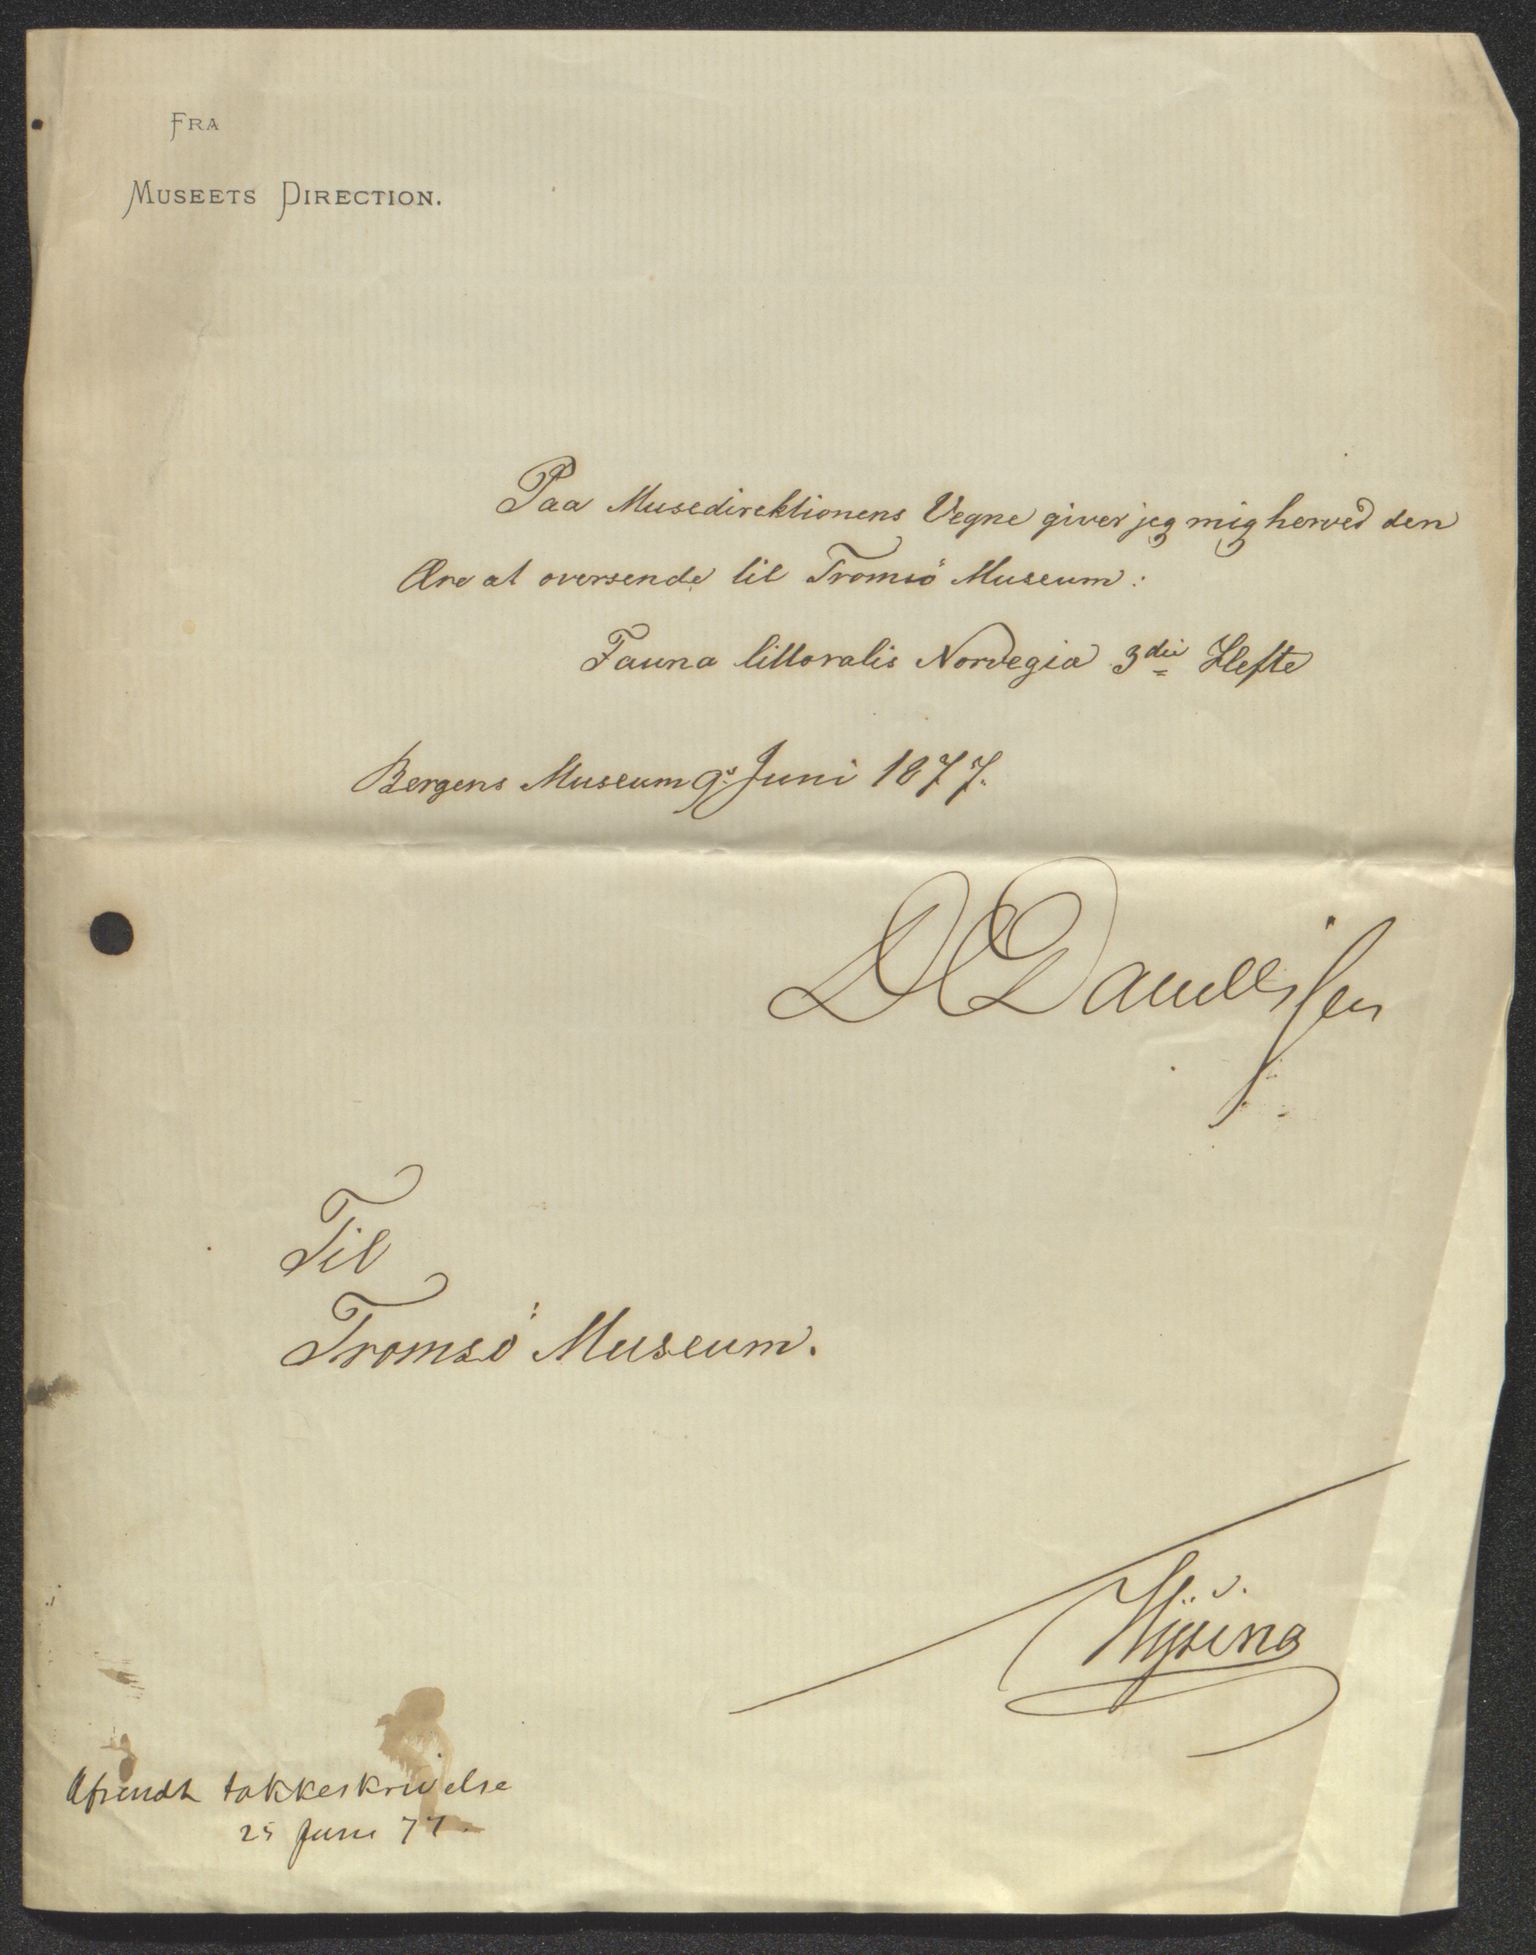 FRA
MUSEETS DIRECTION.
Paa Musedirektionens Vegne giver jeg mig herved den
Ære at oversende til Tromsö Museum:
Fauna littoralis Norvegia 3die Hefte
Bergens Museum 9. Juni 1877.
D C Danielssen
Til
Tromsö Museum.
Afsendt takkeskrivelse
25 Juni 77.